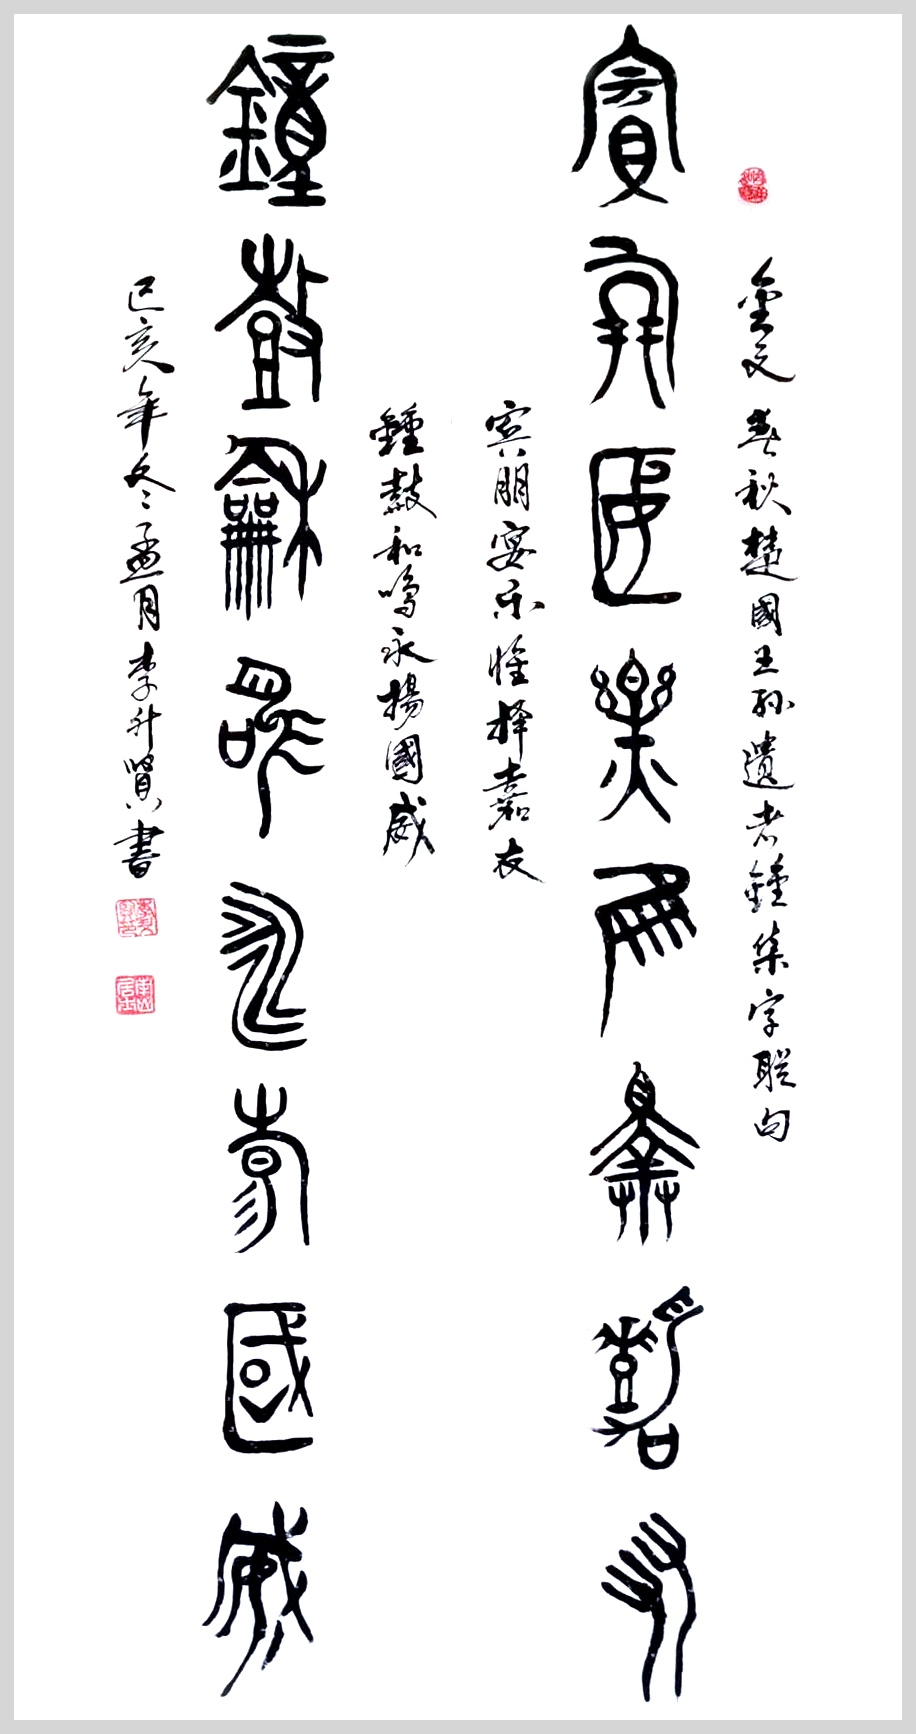 金文 春秋楚國王孫遺者鐘集字聯句
賓朋匽樂隹擇嘉友
賓朋宴乐惟择嘉友
鐘鼓和鳴永揚國威
鐘鼓龢鳴永昜國威
己亥年冬孟月李升賢書